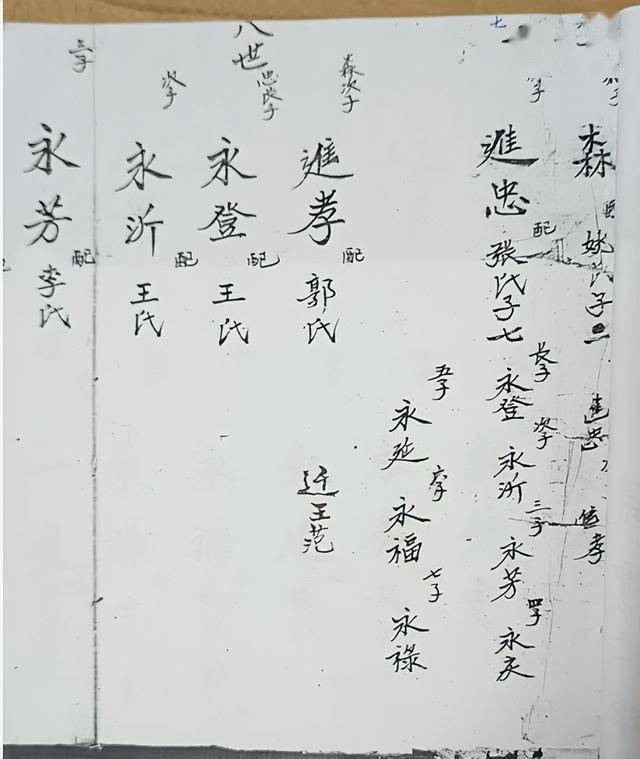 森 配 姚氏 子二 進忠 進孝
七
進忠 配 張氏 子七 长子 永登 次子 永沂 三子 永芳 四子 永灰
五子 永延 六子 永福 七子 永祿
森次子 進孝 配 郭氏 迁王范
八世
忠长子 永登 配 王氏
次子 永沂 配 王氏
三子 永芳 配 李氏